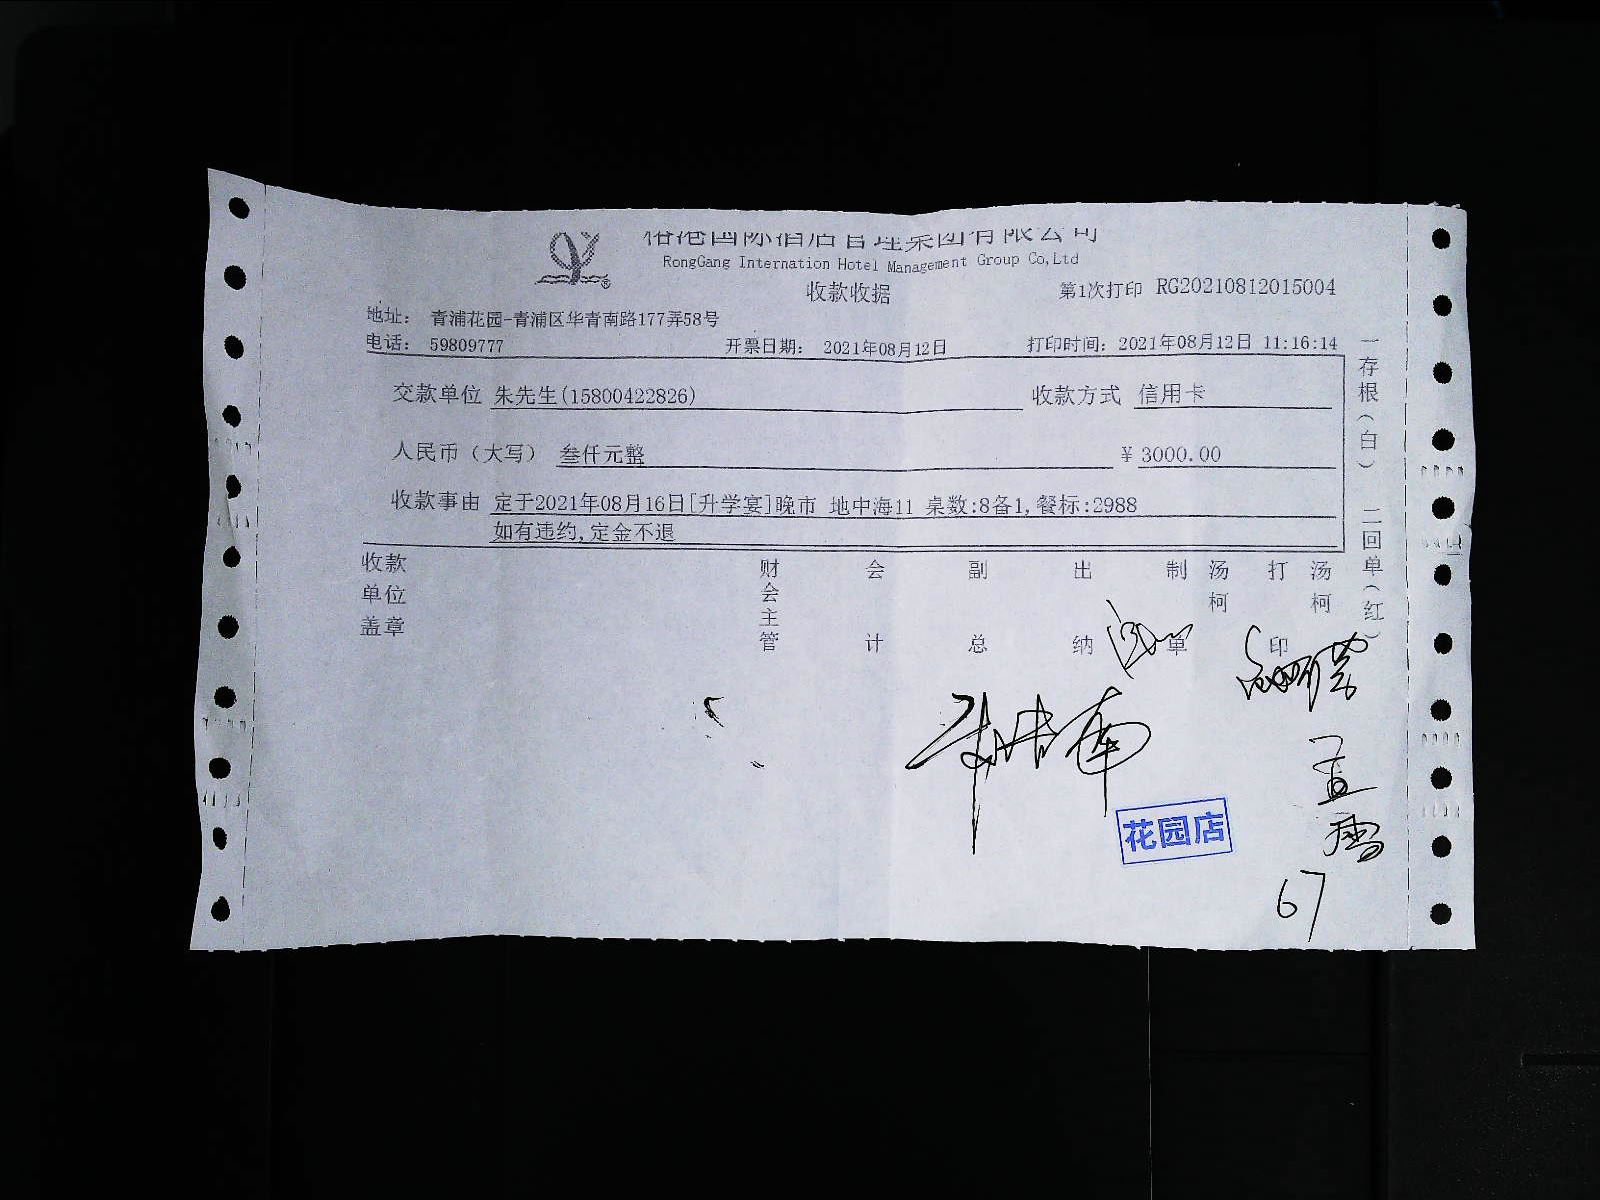 榕港国际酒店管理集团有限公司
RongGang Internation Hotel Management Group Co,Ltd
收款收据
第1次打印 RG20210812015004
地址: 青浦花园-青浦区华青南路177弄58号
电话: 59809777 开票日期: 2021年08月12日 打印时间: 2021年08月12日 11:16:14
交款单位 朱先生(15800422826) 收款方式 信用卡
人民币（大写） 叁仟元整 ¥ 3000.00
收款事由 定于2021年08月16日[升学宴]晚市 地中海11 桌数:8备1,餐标:2988
如有违约,定金不退
收款单位盖章 财会主管 会计 副总 出纳 制单 汤柯 打印 汤柯
一存根(白) 二回单(红)
花园店
67